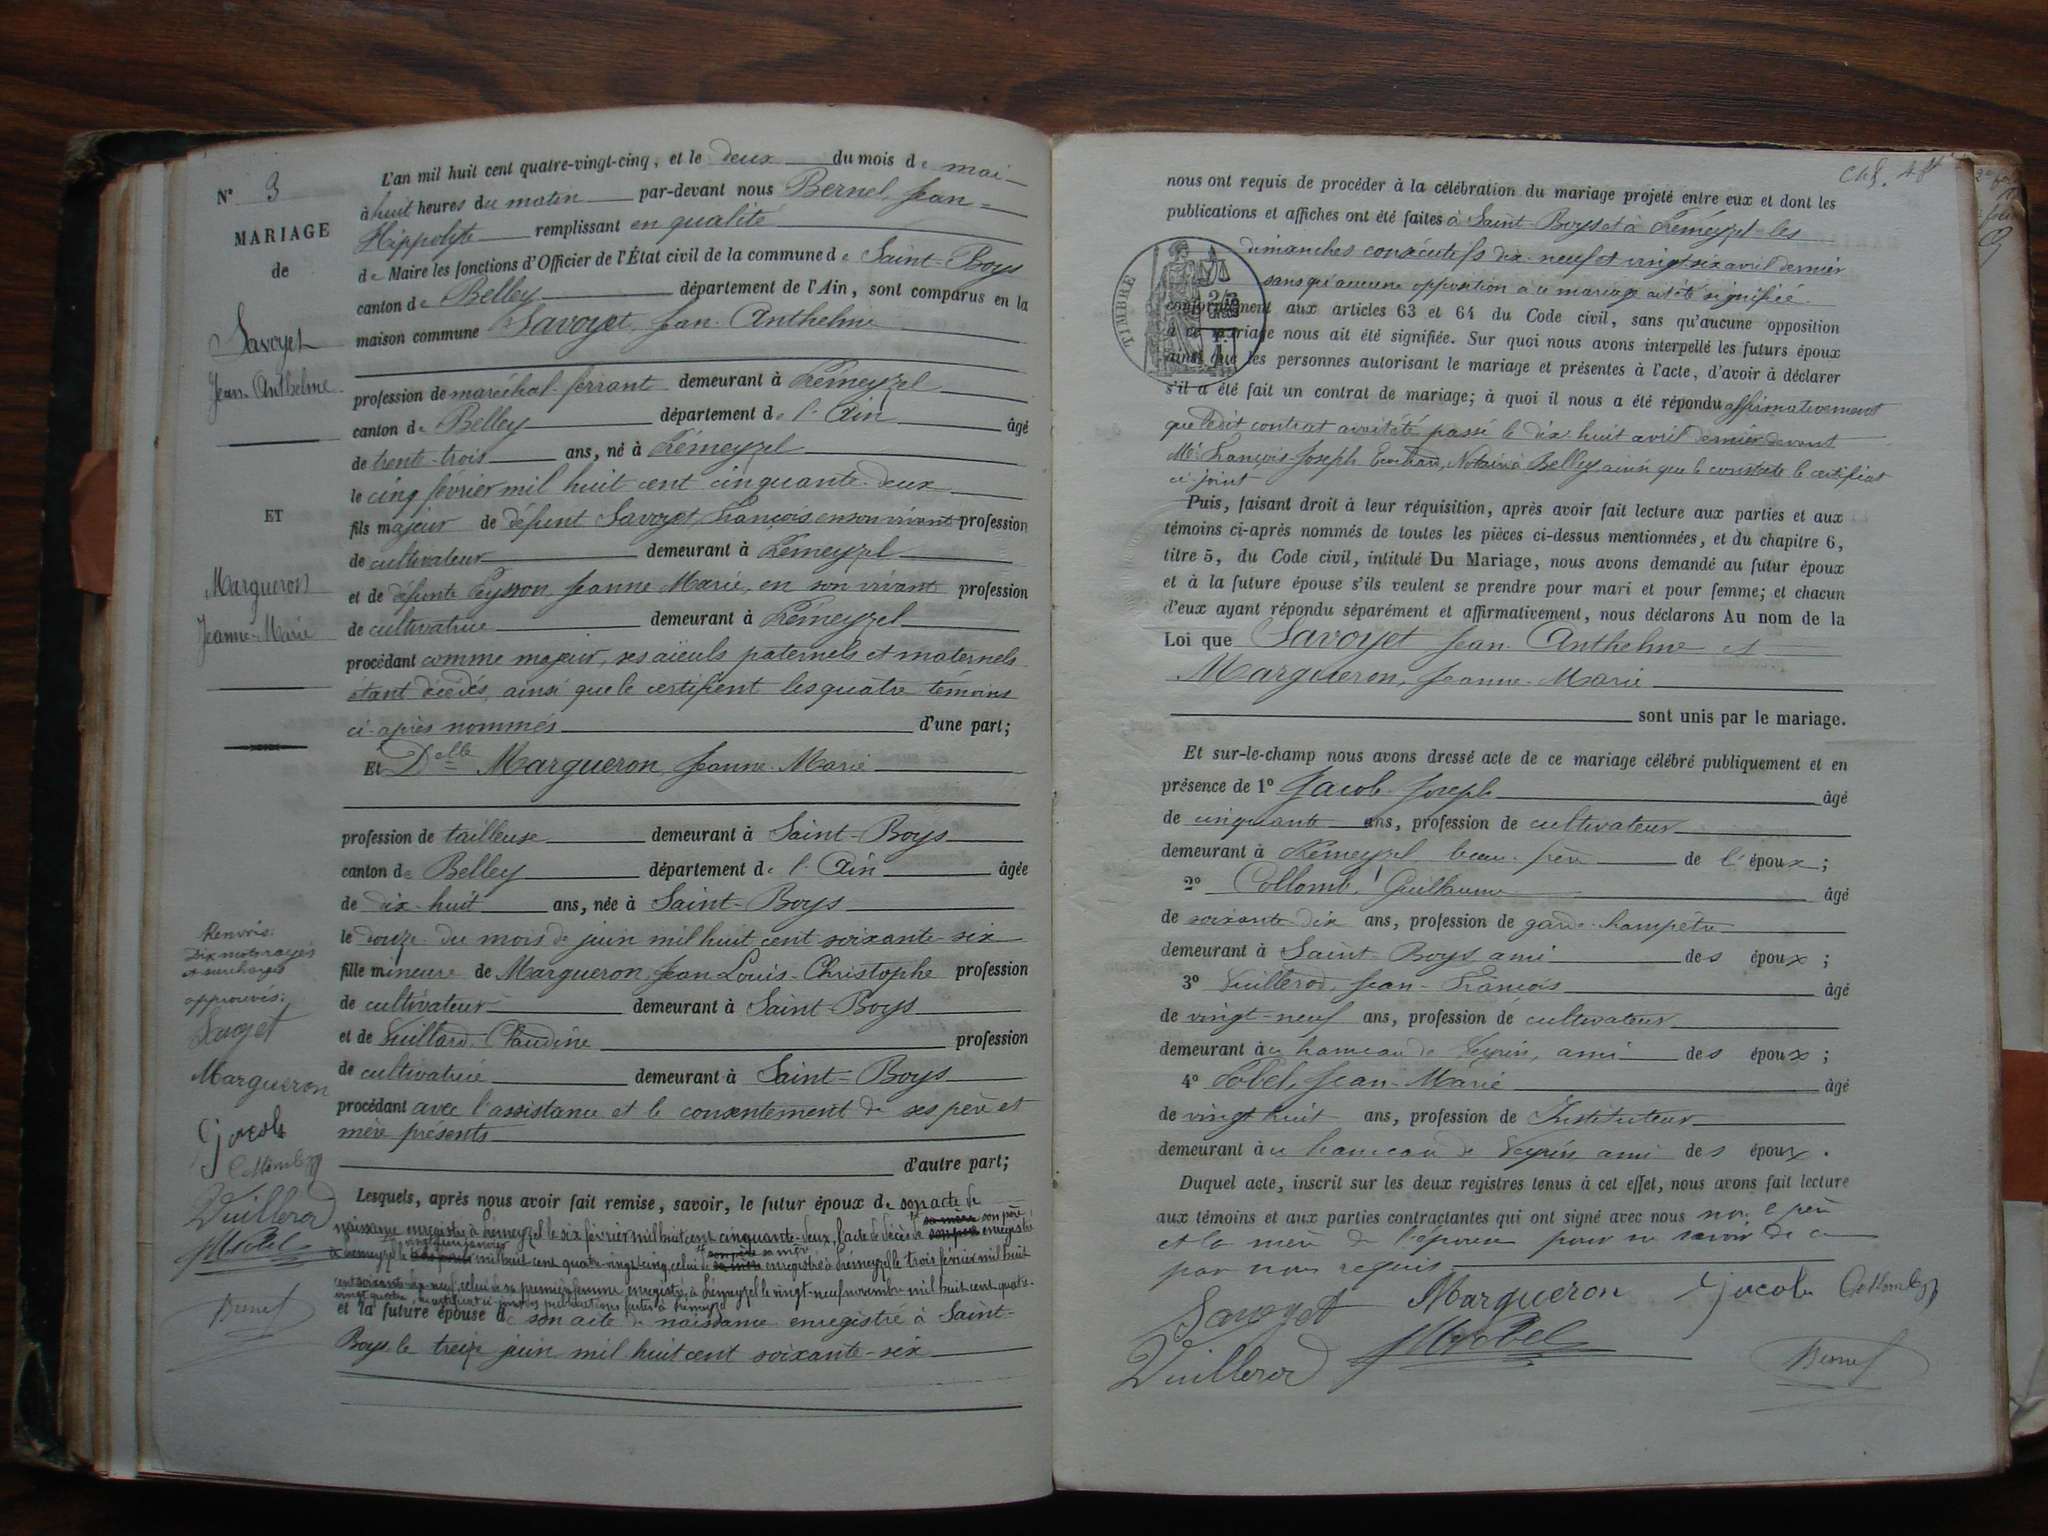 N° 3
MARIAGE
de
Savoyet
Jean-Anthelme
ET
Margueron
Jeanne-Marie
Renvois:
Dix mots rayés
et surchargés
approuvés:
Savoyet
Margueron
Jacob
Collomb g
Vuillerod
JM Sobel
Bernel
L'an mil huit cent quatre-vingt-cinq, et le deux du mois de mai
à huit heures du matin par-devant nous Bernel, Jean-
Hippolyte remplissant en qualité
de Maire les fonctions d'Officier de l'État civil de la commune de Saint-Boys
canton de Belley département de l'Ain, sont comparus en la
maison commune Savoyet, Jean-Anthelme
profession de maréchal-ferrant demeurant à Prémeyzel
canton de Belley département de l'Ain âgé
de trente-trois ans, né à Prémeyzel
le cinq février mil huit cent cinquante-deux
fils majeur de défunt Savoyet, François en son vivant profession
de cultivateur demeurant à Prémeyzel
et de défunte Peysson, Jeanne Marie, en son vivant profession
de cultivatrice demeurant à Prémeyzel
procédant comme majeur, ses aïeuls paternels et maternels
étant décédés, ainsi que le certifient les quatre témoins
ci-après nommés d'une part;
Et Delle Margueron, Jeanne-Marie
profession de tailleuse demeurant à Saint-Boys
canton de Belley département de l'Ain âgée
de dix-huit ans, née à Saint-Boys
le douze du mois de juin mil huit cent soixante-six
fille mineure de Margueron, Jean Louis-Christophe profession
de cultivateur demeurant à Saint-Boys
et de Vuillard, Claudine profession
de cultivatrice demeurant à Saint-Boys
procédant avec l'assistance et le consentement de ses père et
mère présents
d'autre part;
Lesquels, après nous avoir fait remise, savoir, le futur époux de son acte de
naissance enregistré à Prémeyzel le six février mil huit cent cinquante-deux, l'acte de décès de son père enregistré
à Prémeyzel le vingt janvier mil huit cent quatre-vingt-cinq, celui de sa mère enregistré à Prémeyzel le trois février mil huit
cent soixante-dix-neuf, celui de sa première femme enregistré à Prémeyzel le vingt-neuf novembre mil huit cent quatre-
vingt-quatre, certificat des publications faites à Prémeyzel
et la future épouse de son acte de naissance enregistré à Saint-
Boys le treize juin mil huit cent soixante-six
nous ont requis de procéder à la célébration du mariage projeté entre eux et dont les
publications et affiches ont été faites à Saint-Boys et à Prémeyzel les
dimanches consécutifs dix-neuf et vingt-six avril dernier
sans qu'aucune opposition à ce mariage ait été signifiée
TIMBRE
conformément aux articles 63 et 64 du Code civil, sans qu'aucune opposition
à ce mariage nous ait été signifiée. Sur quoi nous avons interpellé les futurs époux
ainsi que les personnes autorisant le mariage et présentes à l'acte, d'avoir à déclarer
s'il a été fait un contrat de mariage; à quoi il nous a été répondu affirmativement
que ledit contrat avait été passé le dix-huit avril dernier devant
Me François-Joseph Notaire à Belley ainsi que le constate le certificat
ci-joint
Puis, faisant droit à leur réquisition, après avoir fait lecture aux parties et aux
témoins ci-après nommés de toutes les pièces ci-dessus mentionnées, et du chapitre 6,
titre 5, du Code civil, intitulé Du Mariage, nous avons demandé au futur époux
et à la future épouse s'ils veulent se prendre pour mari et pour femme; et chacun
d'eux ayant répondu séparément et affirmativement, nous déclarons Au nom de la
Loi que Savoyet Jean-Anthelme et
Margueron, Jeanne-Marie
sont unis par le mariage.
Et sur-le-champ nous avons dressé acte de ce mariage célébré publiquement et en
présence de 1° Jacob Joseph âgé
de cinquante ans, profession de cultivateur
demeurant à Prémeyzel, beau-père de l'époux;
2° Collomb, Guillaume âgé
de soixante dix ans, profession de garde-champêtre
demeurant à Saint-Boys ami des époux;
3° Vuillerod, Jean-François âgé
de vingt-neuf ans, profession de cultivateur
demeurant au hameau de Veyrin, ami des époux;
4° Sobel, Jean-Marie âgé
de vingt huit ans, profession de Instituteur
demeurant au hameau de Veyrin ami des époux.
Duquel acte, inscrit sur les deux registres tenus à cet effet, nous avons fait lecture
aux témoins et aux parties contractantes qui ont signé avec nous non le père
et la mère de l'épouse pour ne savoir de ce
par nous requis
Savoyet Margueron Jacob Collomb g
Vuillerod JM Sobel Bernel